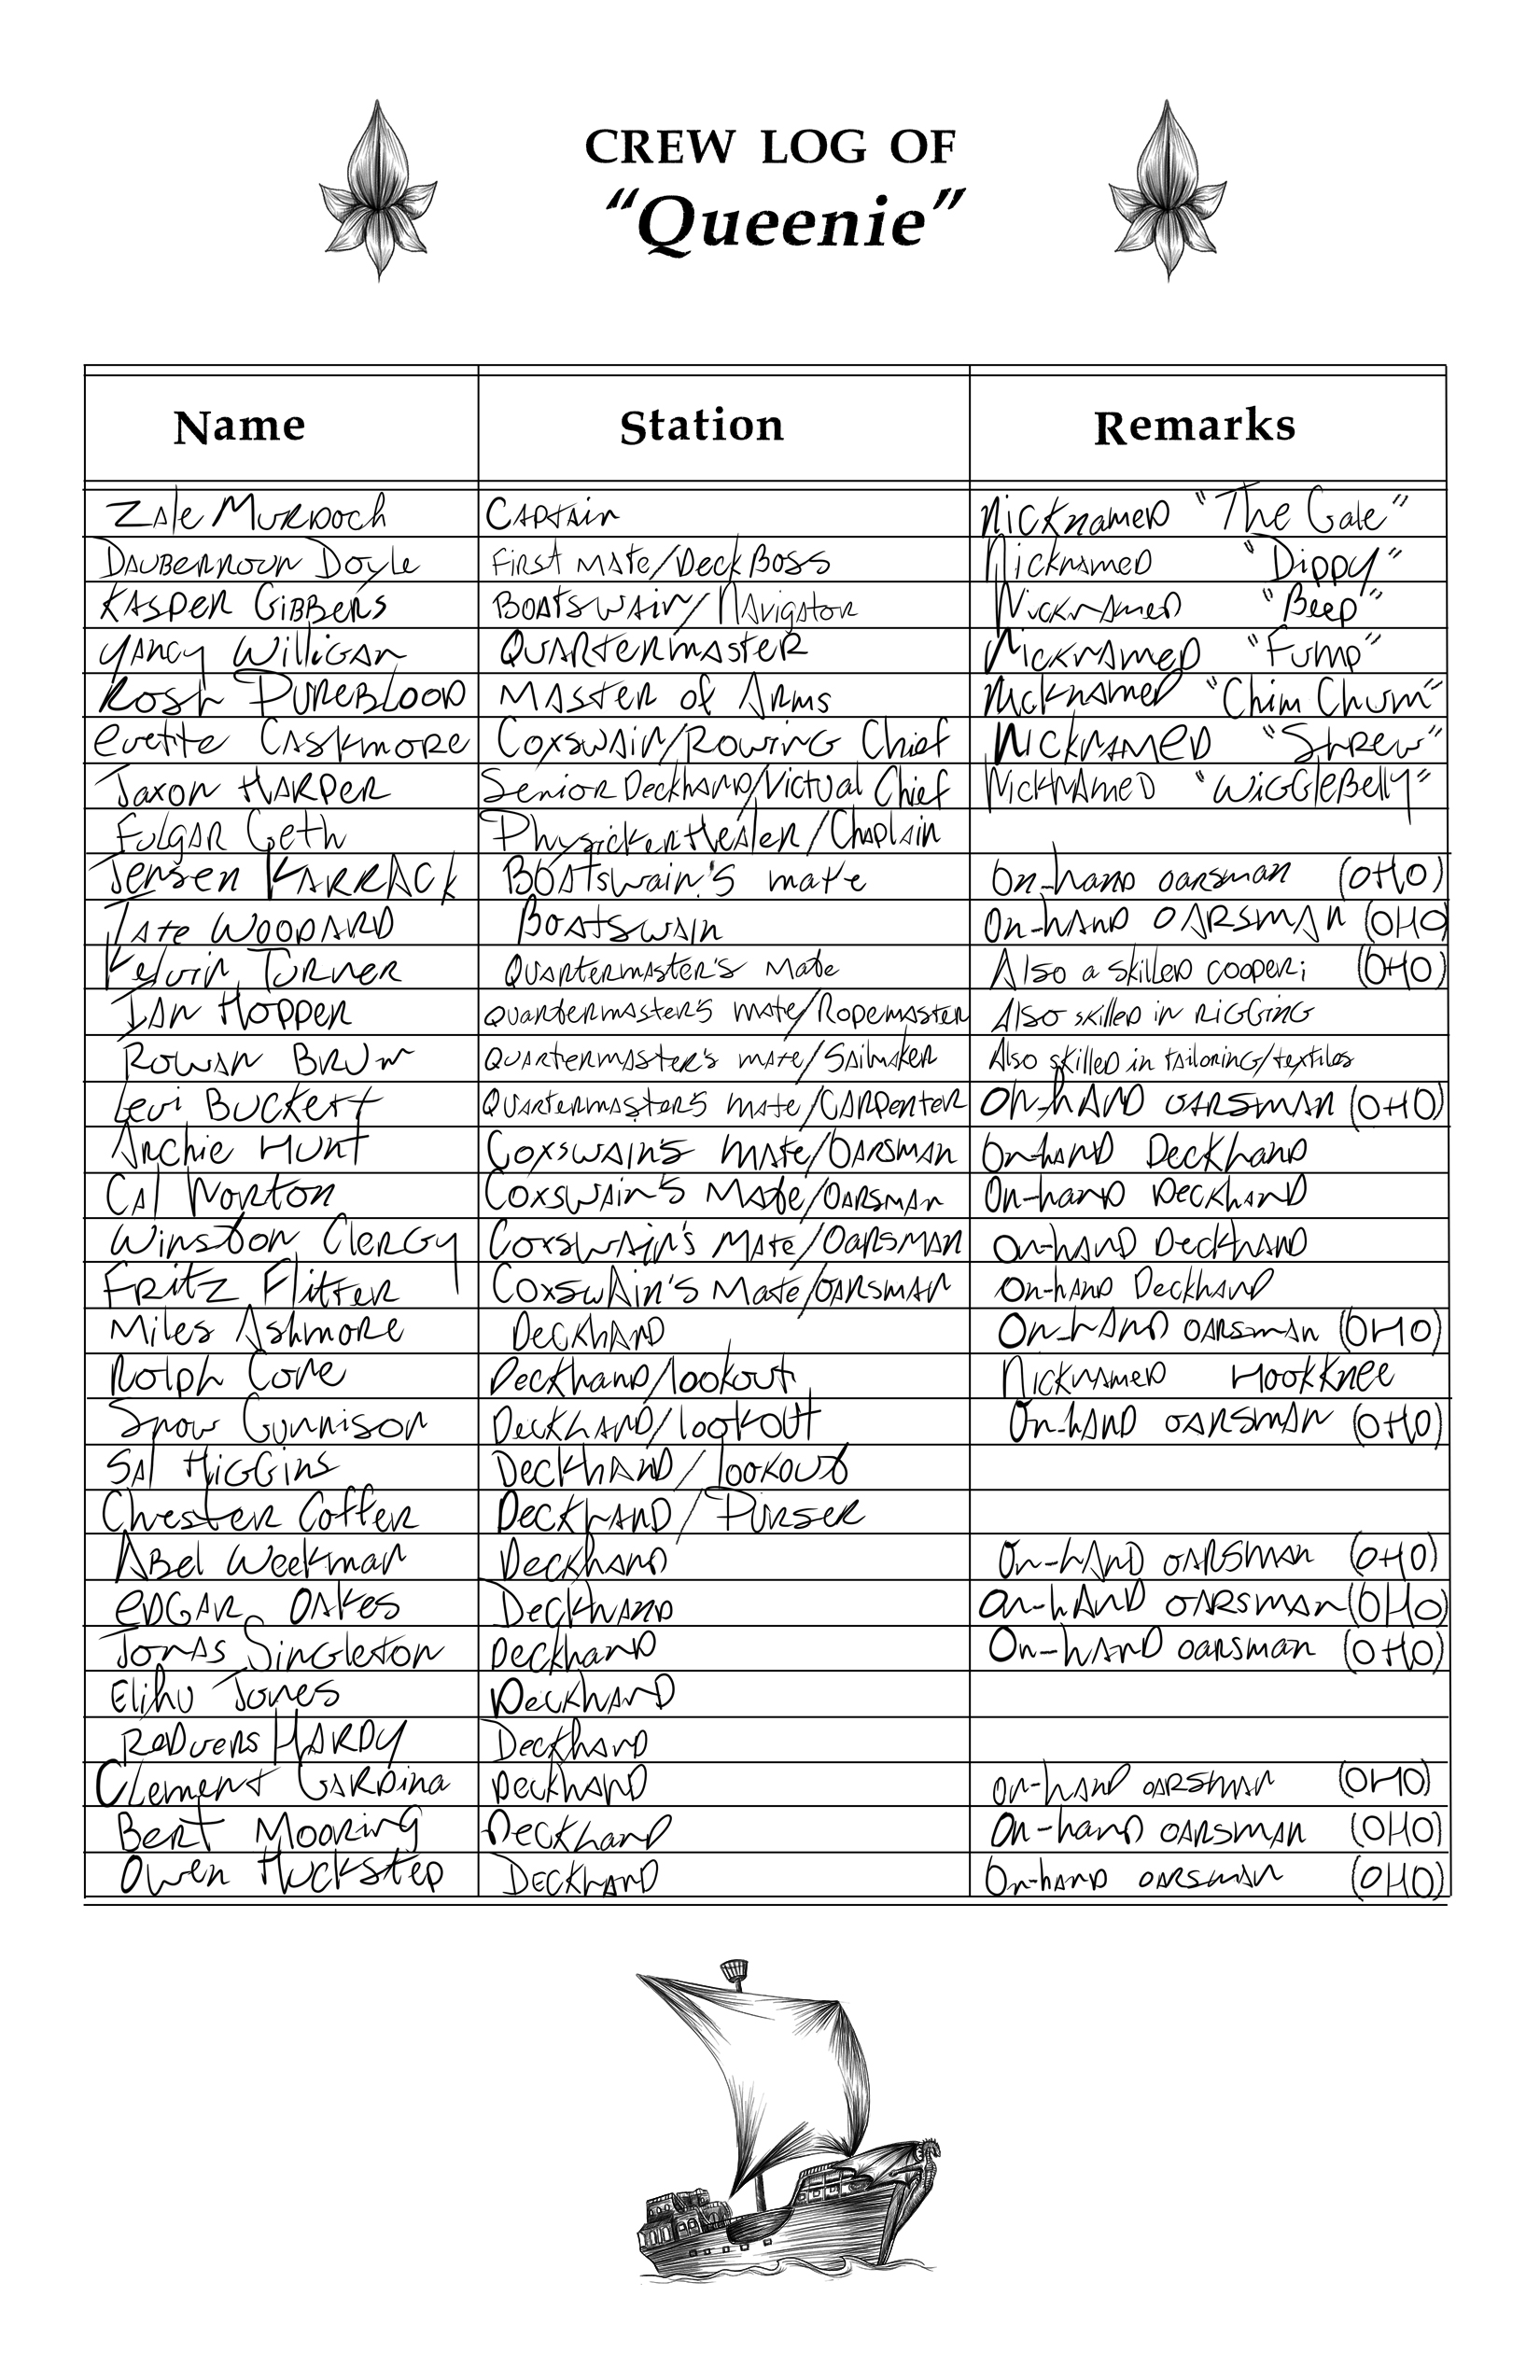 CREW LOG OF
"Queenie"
Name Station Remarks
Zale Murdoch Captain Nicknamed "The Gale"
Dauberroun Doyle First Mate/Deck Boss Nicknamed "Dippy"
Kasper Gibbens Boatswain/Navigator Nicknamed "Beep"
Yancy Willigan Quartermaster Nicknamed "Fump"
Rosh Pureblood Master of Arms Nicknamed "Chim Chum"
Evette Caskmore Coxswain/Rowing Chief Nicknamed "Shrew"
Jaxon Harper Senior Deckhand/Victual Chief Nicknamed "WiggleBelly"
Fulgar Geth Physicker/Healer/Chaplain
Jensen Karrack Boatswain's mate On-hand oarsman (OHO)
Tate Woodard Boatswain On-hand oarsman (OHO)
Kelvin Turner Quartermaster's Mate Also a skilled cooper; (OHO)
Ian Hopper Quartermaster's mate/Ropemaster Also skilled in rigging
Rowan Brum Quartermaster's mate/Sailmaker Also skilled in tailoring/textiles
Levi Buckett Quartermaster's mate/Carpenter On-hand oarsman (OHO)
Archie Hunt Coxswain's mate/Oarsman On-hand Deckhand
Cal Norton Coxswain's Mate/Oarsman On-hand Deckhand
Winston Clergy Coxswain's Mate/Oarsman On-hand Deckhand
Fritz Flitter Coxswain's Mate/Oarsman On-hand Deckhand
Miles Ashmore Deckhand On-hand oarsman (OHO)
Rolph Core Deckhand/lookout Nicknamed HookKnee
Snow Gunnison Deckhand/lookout On-hand oarsman (OHO)
Sal Higgins Deckhand/lookout
Chester Coffer Deckhand/Purser
Abel Weekman Deckhand On-hand oarsman (OHO)
Edgar Oakes Deckhand On-hand oarsman (OHO)
Jonas Singleton Deckhand On-hand oarsman (OHO)
Elihu Jones Deckhand
Redvers Hardy Deckhand
Clement Gardina Deckhand On-hand oarsman (OHO)
Bert Mooring Deckhand On-hand oarsman (OHO)
Owen Huckstep Deckhand On-hand oarsman (OHO)